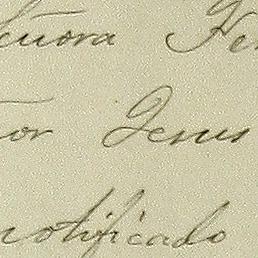 eñora Fe
or Jesus
notificado